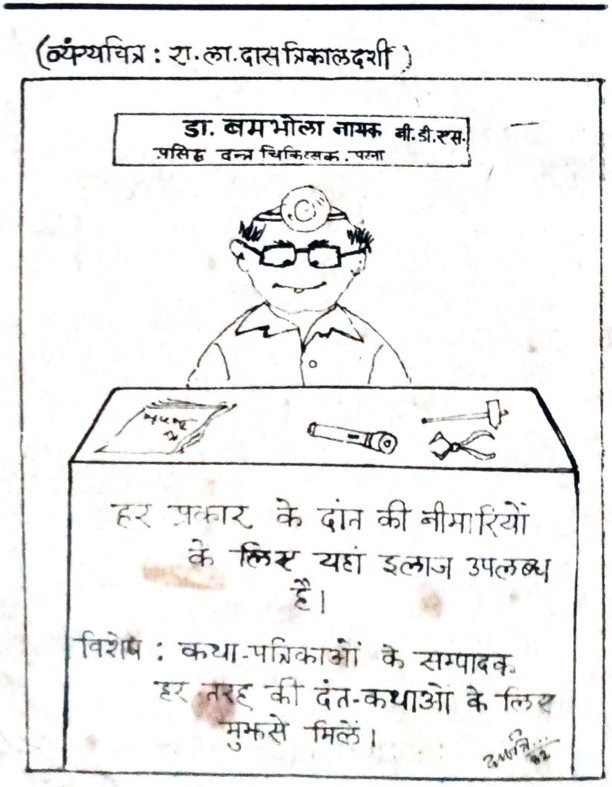 (व्यंग्यचित्र : रा.ला.दास त्रिकालदर्शी)
डा. बमभोला नायक बी.डी.एस.
प्रसिद्ध दन्त चिकित्सक. पटना
हर प्रकार के दांत की बीमारियों
के लिए यहां इलाज उपलब्ध
है।
विशेष : कथा-पत्रिकाओं के सम्पादक
हर तरह की दंत-कथाओं के लिए
मुझसे मिलें।